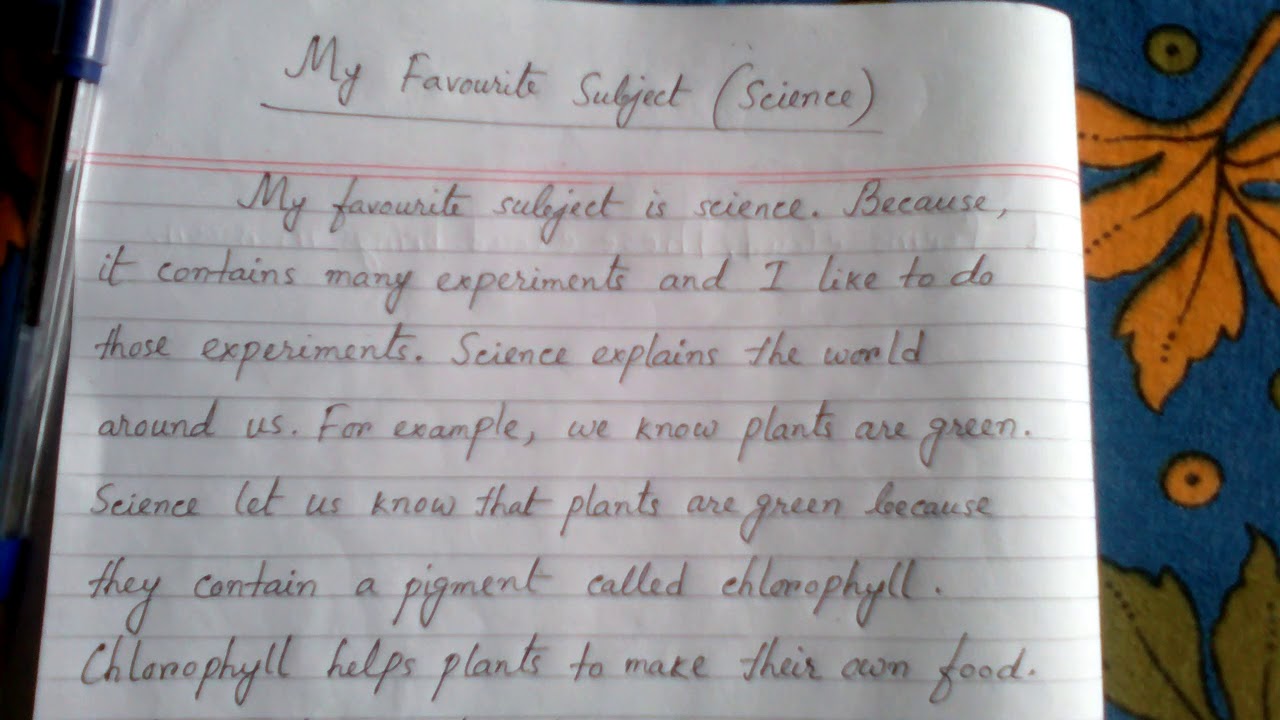 My Favourite Subject (Science)
My favourite subject is science. Because,
it contains many experiments and I like to do
those experiments. Science explains the world
around us. For example, we know plants are green.
Science let us know that plants are green because
they contain a pigment called chlorophyll.
Chlorophyll helps plants to make their own food.